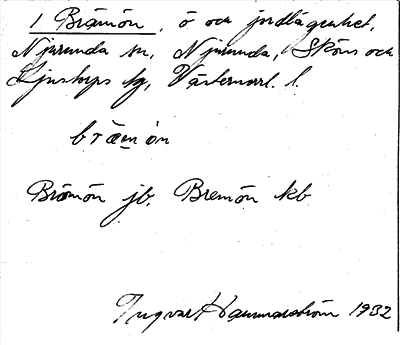 1 Brämön, ö och jordlägenhet,
Njurunda sn, Njurunda, Sköns och
Ljustorps tg, Västernorrl. l.
bräm òn
Brämön jb, Bremön kb
Ingvar Hammarström 1932